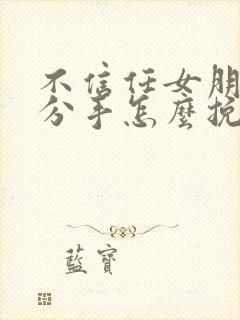 不信任女朋
分手怎麼挽
藍寶